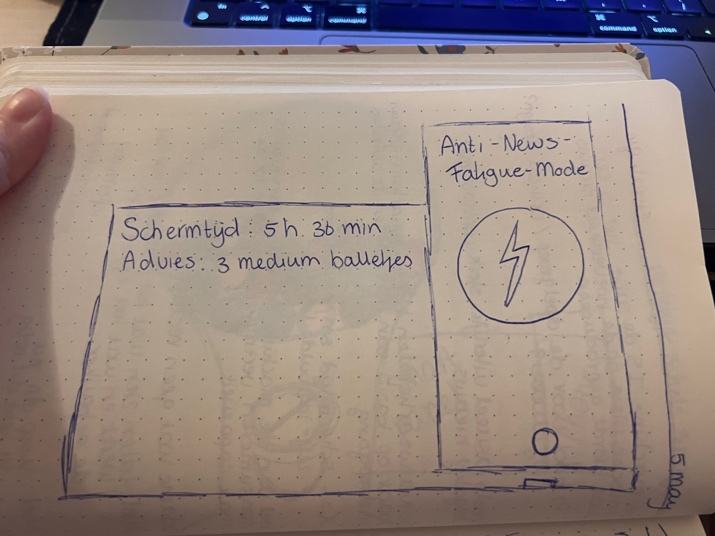 control
option
command
command
option
Anti-News-
Fatigue-Mode
Schermtijd: 5 h 36 min
Advies: 3 medium balletjes
5 may